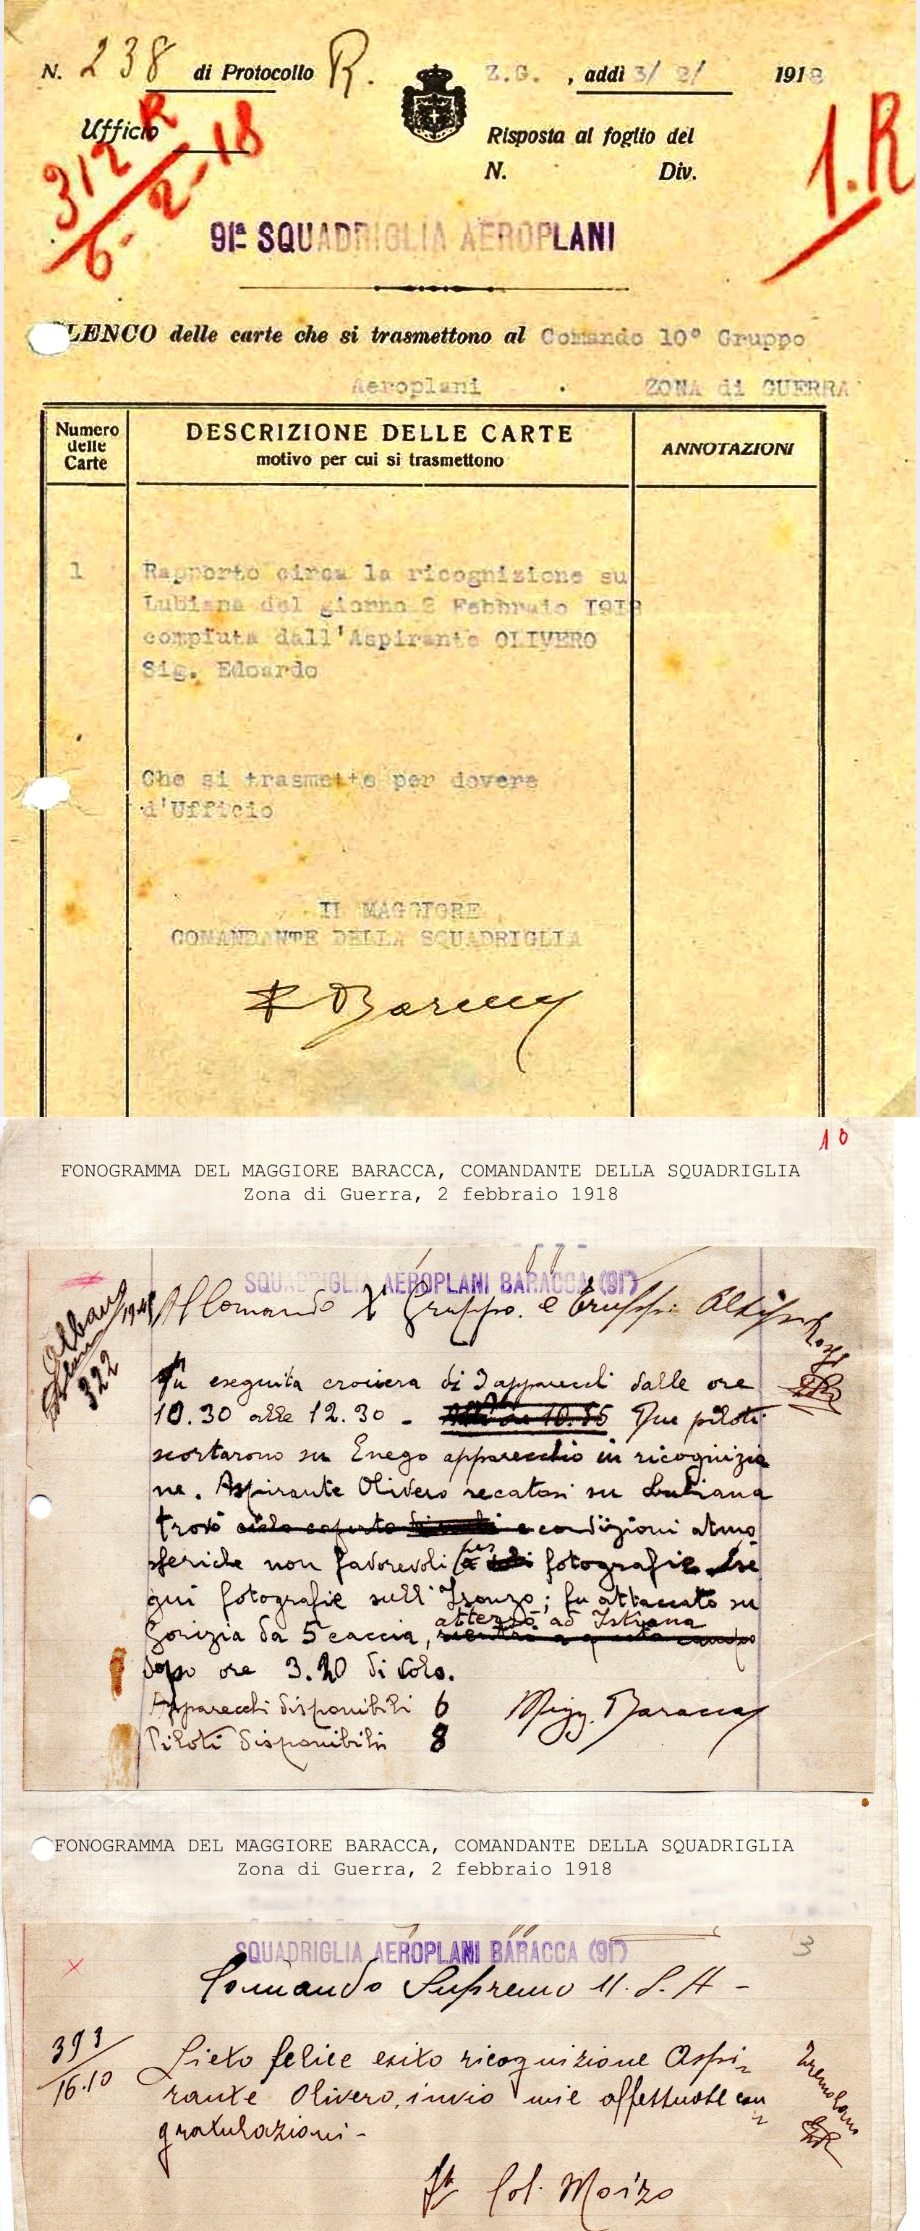 N. 238 di Protocollo R.
Z.G. , addì 3/ 2/ 1918
312 R
6-2-18
Ufficio
Risposta al foglio del
N. Div.
1.R
91ª SQUADRIGLIA AEROPLANI
ELENCO delle carte che si trasmettono al Comando 10° Gruppo
Aeroplani . ZONA di GUERRA
Numero delle Carte
DESCRIZIONE DELLE CARTE
motivo per cui si trasmettono
ANNOTAZIONI
1 Rapporto circa la ricognizione su
Lubiana del giorno 2 Febbraio I918
compiuta dall'Aspirante OLIVERO
Sig. Edoardo
Che si trasmette per dovere
d'Ufficio
IL MAGGIORE
COMANDANTE DELLA SQUADRIGLIA
F Baracca
10
FONOGRAMMA DEL MAGGIORE BARACCA, COMANDANTE DELLA SQUADRIGLIA
Zona di Guerra, 2 febbraio 1918
SQUADRIGLIA AEROPLANI BARACCA (91ª)
Al Comando X Gruppo e
322
Fu eseguita crociera di 3 apparecchi dalle ore
10.30 alle 12.30 - Due piloti
scortarono su Enego apparecchio in ricognizio
ne. Aspirante Olivero recatosi su Lubiana
trovò condizioni atmo
sferiche non favorevoli per fotografie. Ese
guì fotografie sull'Isonzo; fu attaccato su
Gorizia da 5 caccia, atterrò ad Istrana
dopo ore 3.20 di volo.
Apparecchi disponibili 6
Magg. Baracca
Piloti disponibili 8
FONOGRAMMA DEL MAGGIORE BARACCA, COMANDANTE DELLA SQUADRIGLIA
Zona di Guerra, 2 febbraio 1918
SQUADRIGLIA AEROPLANI BARACCA (91ª)
3
Comando Supremo U.S.A -
393
16.10
Lieto felice esito ricognizione Aspi-
rante Olivero, invio mie affettuose con
gratulazioni -
Fto Col. Moizo